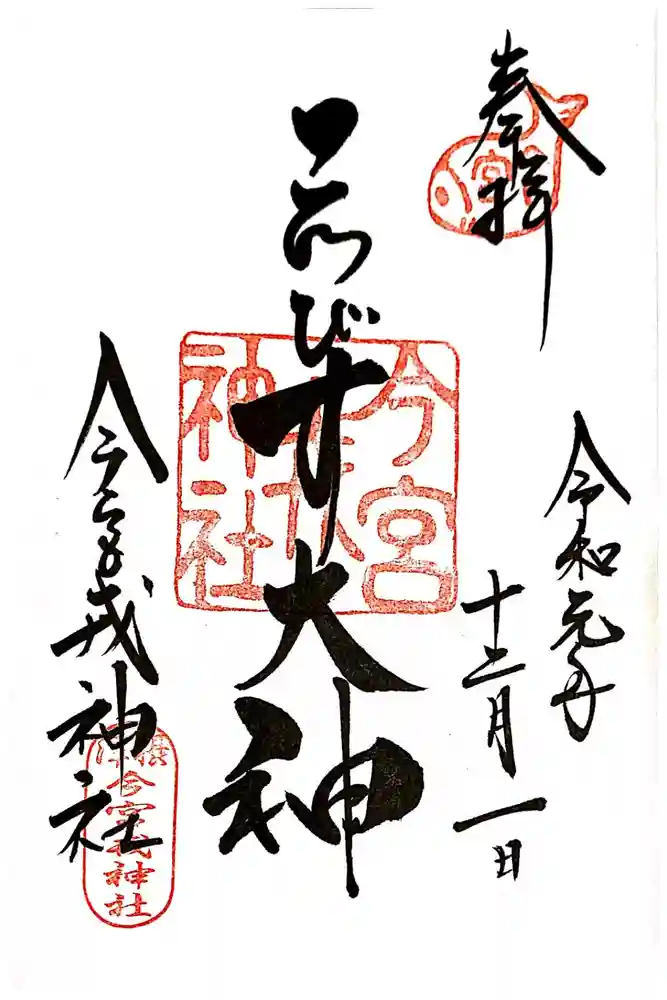 奉拝
令和元年
十二月一日
ゑびす大神
今宮戎神社
今宮戎神社
今宮戎神社